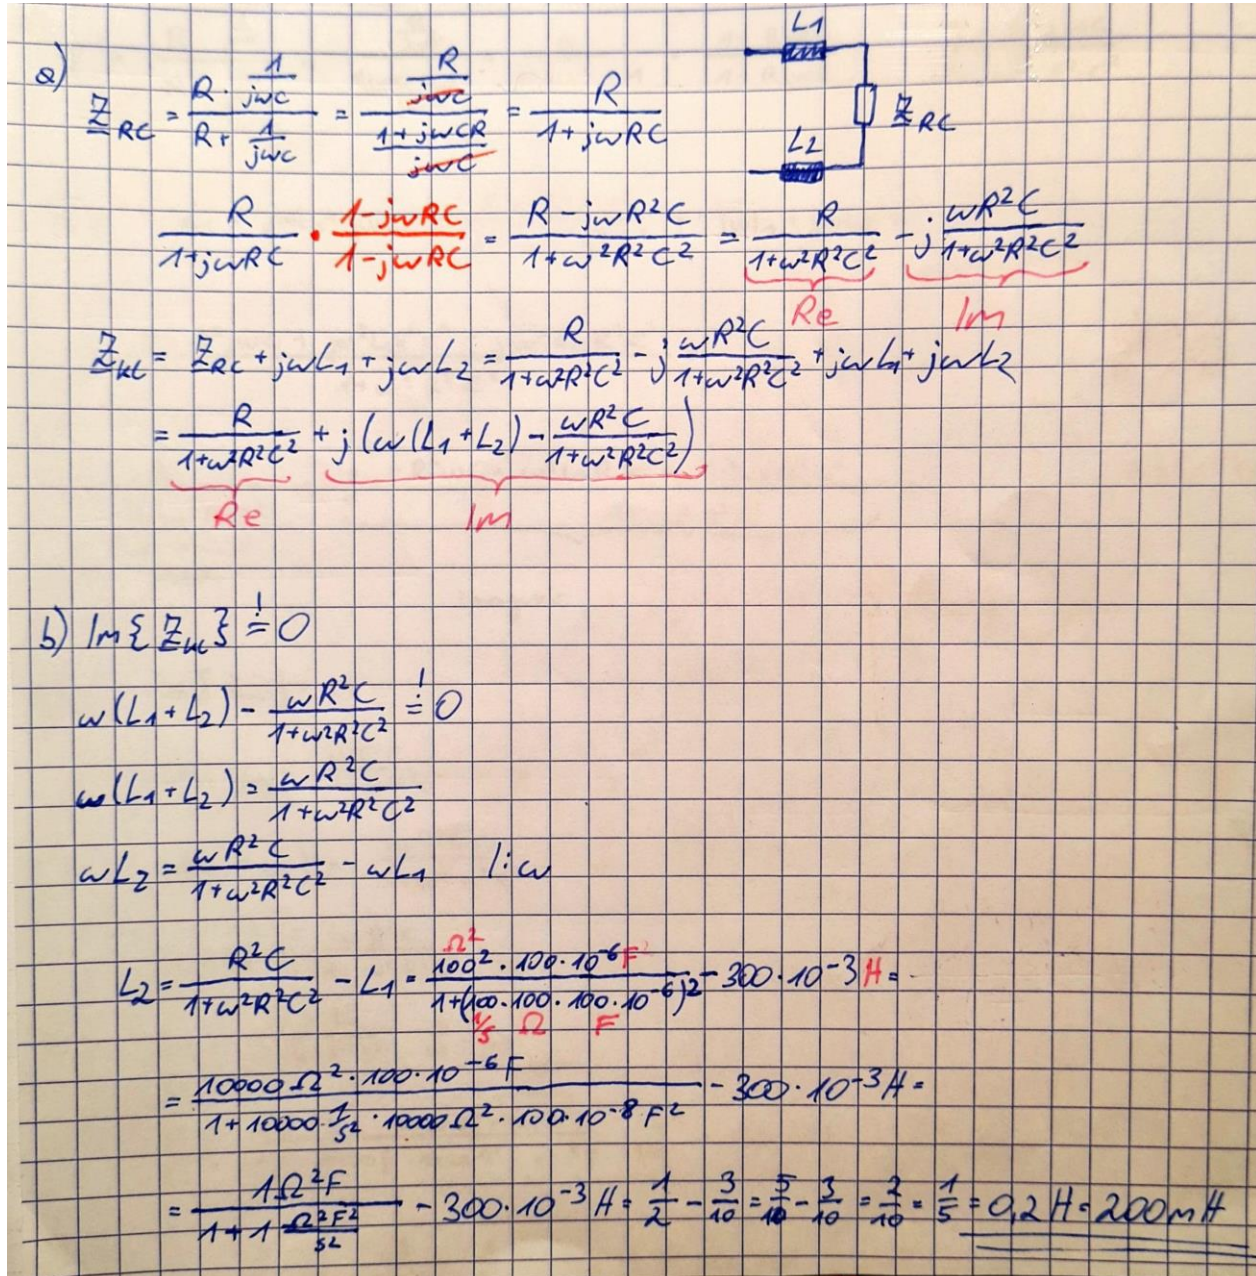 L1
a) Z_RC = (R · 1/(jωC)) / (R + 1/(jωC)) = (R/(jωC)) / ((1+jωCR)/(jωC)) = R/(1+jωRC)
Z_RC
L2
R/(1+jωRC) · (1-jωRC)/(1-jωRC) = (R-jωR²C)/(1+ω²R²C²) = R/(1+ω²R²C²) - j ωR²C/(1+ω²R²C²)
Re Im
Z_KL = Z_RC + jωL1 + jωL2 = R/(1+ω²R²C²) - j ωR²C/(1+ω²R²C²) + jωL1 + jωL2
= R/(1+ω²R²C²) + j (ω(L1+L2) - ωR²C/(1+ω²R²C²))
Re Im
b) Im{Z_KL} != 0
ω(L1+L2) - ωR²C/(1+ω²R²C²) != 0
ω(L1+L2) = ωR²C/(1+ω²R²C²)
ωL2 = ωR²C/(1+ω²R²C²) - ωL1 |:ω
L2 = R²C/(1+ω²R²C²) - L1 = (100² Ω² · 100·10⁻⁶ F)/(1+(100 1/s · 100 Ω · 100·10⁻⁶ F)²) - 300·10⁻³ H =
= (10000 Ω² · 100·10⁻⁶ F)/(1+10000 1/s² · 10000 Ω² · 100·10⁻⁸ F²) - 300·10⁻³ H =
= (1 Ω²F)/(1+1 Ω²F²/s²) - 300·10⁻³ H = 1/2 - 3/10 = 5/10 - 3/10 = 2/10 = 1/5 = 0,2 H = 200 mH